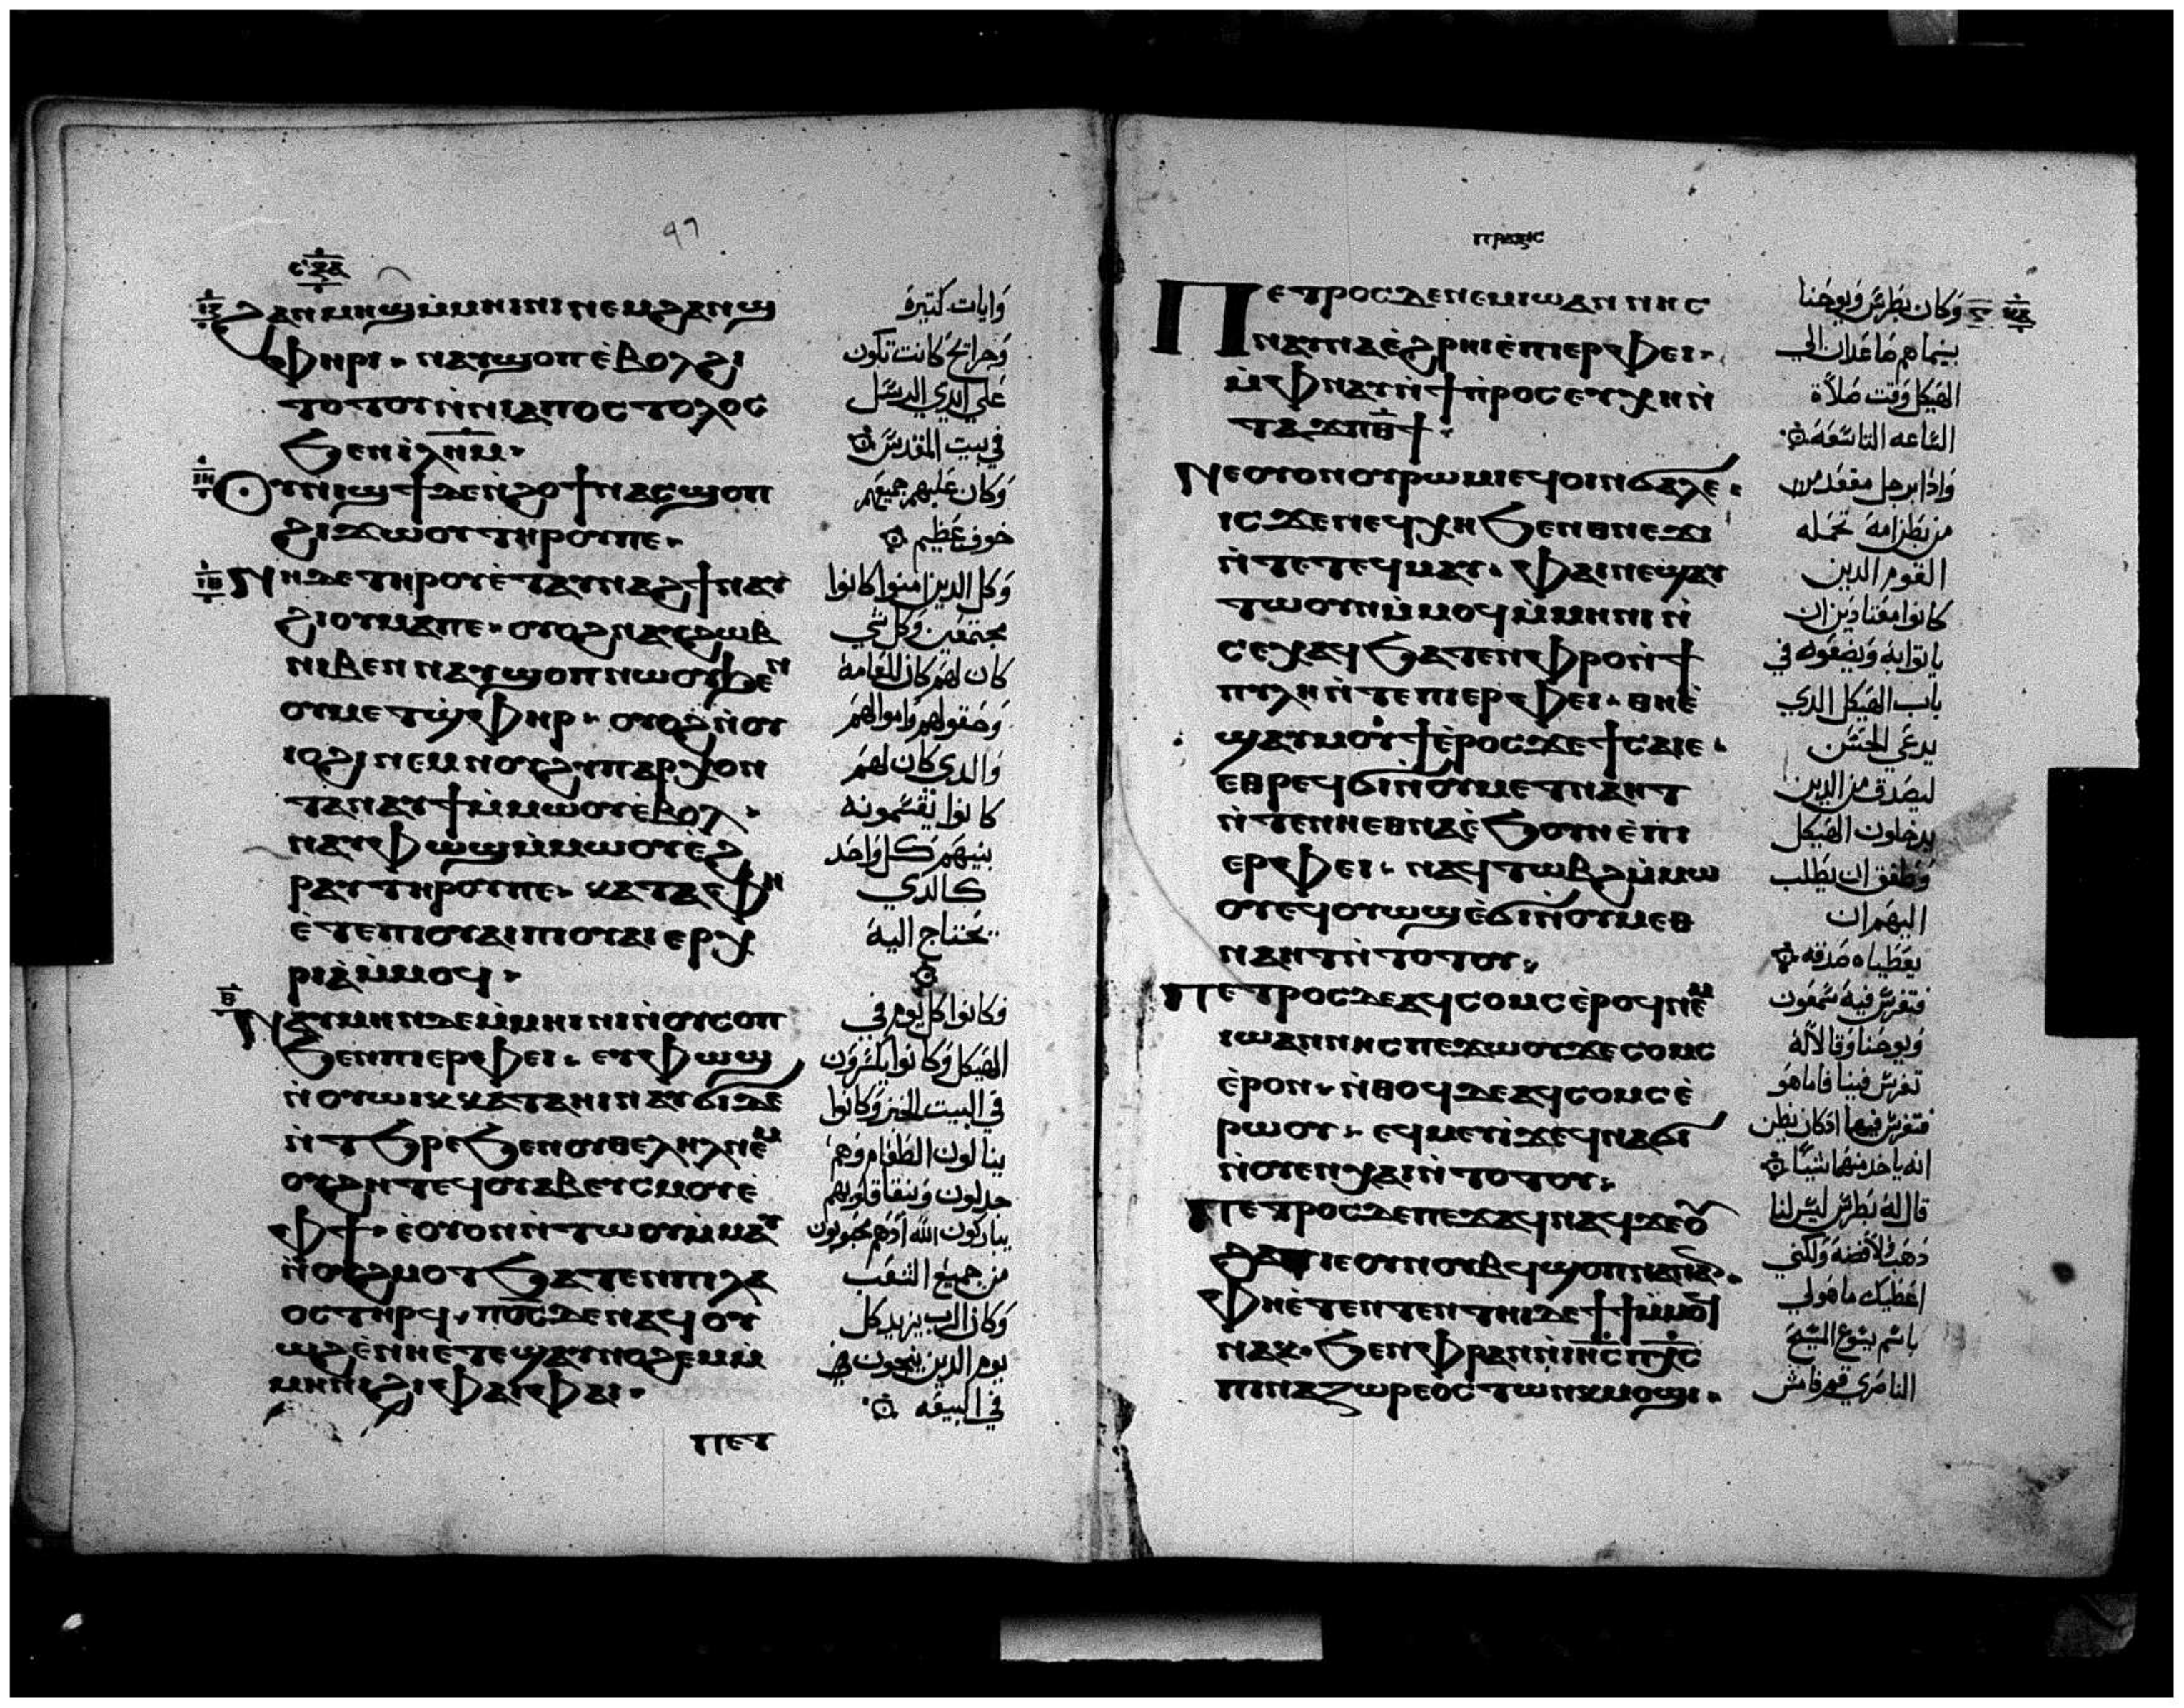 ϨⲀⲚⲘⲎϢⲘ̀ⲘⲎⲒⲚⲒⲚⲈⲘϨⲀⲚϢ
ⲪⲎⲢⲒ· ⲚⲀⲨϢⲞⲠⲈ̀ⲂⲞⲖϨⲒ
ⲦⲞⲦⲞⲨⲚ̀ⲚⲒⲀⲠⲞⲤⲦⲞⲖⲞⲤ
ϦⲈⲚⲒⲖⲎⲘ·
ⲞⲨⲚⲒϢϮⲆⲈⲚ̀ϨⲞϮⲚⲀⲤϢⲞⲠ
ϨⲒϪⲰⲞⲨⲦⲎⲢⲞⲨⲠⲈ·
ⲚⲎⲆⲈⲦⲎⲢⲞⲨⲈ̀ⲦⲀⲨⲚⲀϨϮⲚⲀⲨ
ϨⲒⲞⲨⲘⲀⲠⲈ· ⲞⲨⲞϨⲚⲀⲢⲈϨⲰⲂ
ⲚⲒⲂⲈⲚⲚⲀⲨϢⲞⲠⲚⲰⲞⲨϦⲈⲚ
ⲞⲨⲘⲈⲦϢ̀ⲪⲎⲢ· ⲞⲨⲞϨⲚ̀ⲞⲨ
ⲒⲞϨⲒⲚⲈⲘⲚⲞⲨϨⲨⲠⲀⲢⲬⲞⲚ
ⲦⲀⲚⲀⲨϮⲘ̀ⲘⲰⲞⲨⲈ̀ⲂⲞⲖ·
ⲚⲀⲨⲪⲰϢⲘ̀ⲘⲰⲞⲨⲈ̀Ϩ
ⲢⲀⲨⲦⲎⲢⲞⲨⲠⲈ· ⲔⲀⲦⲀⲪⲎ
ⲈⲦⲈⲠⲒⲞⲨⲀⲒⲠⲒⲞⲨⲀⲒⲈⲢⲬ
ⲢⲒⲀ̀Ⲙ̀ⲘⲞϤ·
ⲚⲀⲨⲘⲎⲚⲆⲈⲘ̀ⲘⲎⲒⲚⲒⲚ̀ⲞⲨⲤⲞⲠ
ϦⲈⲚⲠⲒⲈⲢⲪⲈⲒ· ⲈⲨⲪⲰϢ
Ⲛ̀ⲞⲨⲰⲒⲔⲔⲀⲦⲀⲎⲒⲚⲀⲨϬⲒⲆⲈ
Ⲛ̀ⲦϦⲢⲈϦⲈⲚⲞⲨⲐⲈⲖⲎⲖⲚⲈⲘ
ⲞⲨϨⲎⲦⲈϤⲞⲨⲀⲂⲈⲨⲤⲘⲞⲨⲈ̀
ⲪϮ· ⲈⲞⲨⲞⲚⲚ̀ⲦⲰⲞⲨⲘ̀ⲘⲀⲨ
Ⲛ̀ⲞⲨϨⲘⲞⲦϦⲀⲦⲈⲚⲠⲒⲖⲀ
ⲞⲤⲦⲎⲢϤ· ⲠϬⲤⲆⲈⲚⲀϤⲞⲨ
ⲰϨⲈ̀ⲚⲎⲈⲦⲈϢⲀⲨⲚⲞϨⲈⲘⲘ̀
ⲘⲎⲚⲒϨⲒⲪⲀⲒⲪⲀⲒ·
ⲠⲈⲦ
وايات كثيرة
وجرايح كانت تكون
علي ايدي الرسل
في بيت المقدس
وكان عليهم جميعهم
خوف عظيم
وكل الدين امنوا كانوا
مجتمعين وكل شي
كان لهم كان للعامة
وحقولهم واموالهم
والدي كان لهم
كانوا يقسمونه
بينهم كل واحد
كالدي
يحتاج اليه
فكانوا كل يوم في
الهيكل وكانوا يكسرون
في البيت الخبز وكانوا
ينالون الطعام وهم
جدلون وبنقا قلوبهم
يباركون الله ادهم محبوبون
من جميع الشعب
وكان الرب يزيد كل
يوم الدين ينجون
في البيعة
ⲠⲢⲀⲜⲒⲤ
ⲠⲈⲦⲢⲞⲤⲆⲈⲚⲈⲘⲒⲰⲀⲚⲚⲎⲤ
ⲚⲀⲨⲚⲀⲈ̀ϨⲢⲎⲒⲈ̀ⲠⲒⲈⲢⲪⲈⲒ·
Ⲙ̀ⲪⲚⲀⲨⲚ̀ϮⲠⲢⲞⲤⲈⲨⲬⲎⲚ̀
ⲦⲀϪⲠⲐϮ·
ⲚⲈⲞⲨⲞⲚⲞⲨⲢⲰⲘⲒⲈϤⲞⲒⲚϬⲀⲖⲈ·
ⲒⲤϪⲈⲚⲈϤⲬⲎϦⲈⲚⲐⲚⲈϪⲒ
Ⲛ̀ⲦⲈⲦⲈϤⲘⲀⲨ· ⲪⲀⲒⲚⲈϢⲀⲨ
ⲦⲰⲞⲨⲚⲘ̀ⲘⲞϤⲘ̀ⲘⲎⲚⲒⲚ̀
ⲤⲈⲬⲀϤϦⲀⲦⲈⲚⲪⲢⲞⲚ̀Ϯ
ⲠⲨⲖⲎⲚ̀ⲦⲈⲠⲒⲈⲢⲪⲈⲒ· ⲐⲎⲈ̀
ϢⲀⲨⲘⲞⲨϮⲈ̀ⲢⲞⲤϪⲈϮⲤⲀⲒⲈ·
ⲈⲐⲢⲈϤϬⲒⲚ̀ⲞⲨⲘⲈⲦⲚⲀⲎⲦ
Ⲛ̀ⲦⲈⲚⲚⲎⲈⲐⲚⲀⲈ̀ϦⲞⲨⲚⲈ̀ⲠⲒ
ⲈⲢⲪⲈⲒ· ⲚⲀϤⲦⲰⲂϨⲘ̀ⲘⲰ
ⲞⲨⲈϤⲞⲨⲰϢⲈ̀ϬⲒⲚ̀ⲞⲨⲘⲈⲐ
ⲚⲀⲎⲦⲚ̀ⲦⲞⲦⲞⲨ·
ⲠⲈⲦⲢⲞⲤⲆⲈⲀϤⲤⲞⲘⲤⲈ̀ⲢⲞϤⲚⲈⲘ
ⲒⲰⲀⲚⲚⲎⲤⲠⲈϪⲰⲞⲨϪⲈⲤⲞⲘⲤ
Ⲉ̀ⲢⲞⲚ· Ⲛ̀ⲐⲞϤⲆⲈⲀϤⲤⲞⲘⲤⲈ̀
ⲢⲰⲞⲨ· ⲈϤⲘⲈⲨⲒ̀ϪⲈϤⲚⲀϬⲒ
Ⲛ̀ⲞⲨⲈⲚⲬⲀⲒⲚ̀ⲦⲞⲦⲞⲨ·
ⲠⲈⲦⲢⲞⲤⲆⲈⲠⲈϪⲀϤⲚⲀϤϪⲈⲞⲨ
ϨⲀⲦⲒⲈⲞⲨⲚⲞⲨⲂϤϢⲞⲠⲚⲎⲒⲀⲚ·
ⲪⲎⲈ̀ⲦⲈⲚⲦⲈⲚⲦⲎⲒⲆⲈϮϮⲘ̀ⲘⲞϤ
ⲚⲀⲔ· ϦⲈⲚⲪⲢⲀⲚⲚ̀ⲒⲎⲤⲠⲬⲤ
ⲠⲒⲚⲀⲌⲰⲢⲈⲞⲤⲦⲰⲚⲔⲘⲞϢⲒ·
وكان بطرس ويوحنا
بينما هم صاعدان الي
الهيكل وقت صلاة
الساعه التاسعه
وادا برجل مقعد من
من بطن امه تحمله
القوم الدين
كانوا معتادين ان
ياتوا به ويضعوه في
باب الهيكل الدي
يدعي الحسن
ليصدق من الدين
يدخلون الهيكل
وطفق ان يطلب
اليهم ان
يعطياه صدقه
فتفرس فيه شمعون
ويوحنا وقالا له
تفرس فينا فاما هو
فتفرس فيهما ادكان يظن
انه ياخد منهما شيئا
قال له بطرس ليس لنا
دهب ولا فضه ولكني
اعطيك ما هو لي
باسم يسوع المسيح
الناصري قم فامش